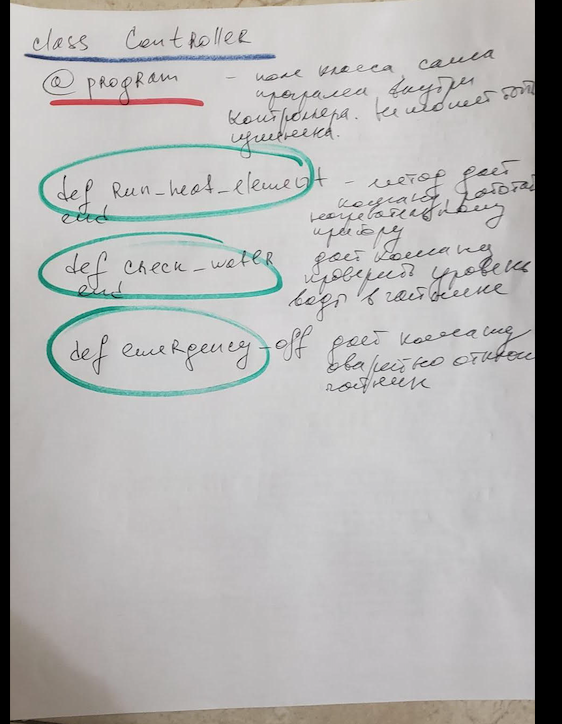 class Controller
@ program - поле класса, сама
программа внутри
контроллера. Не может быть
изменена.
def run_heat_element - метод дает
команду работать
end нагревательному
прибору
def check_water дает команду
end проверить уровень
воды в чайнике
def emergency_off дает команду
аварийно отключ
чайник